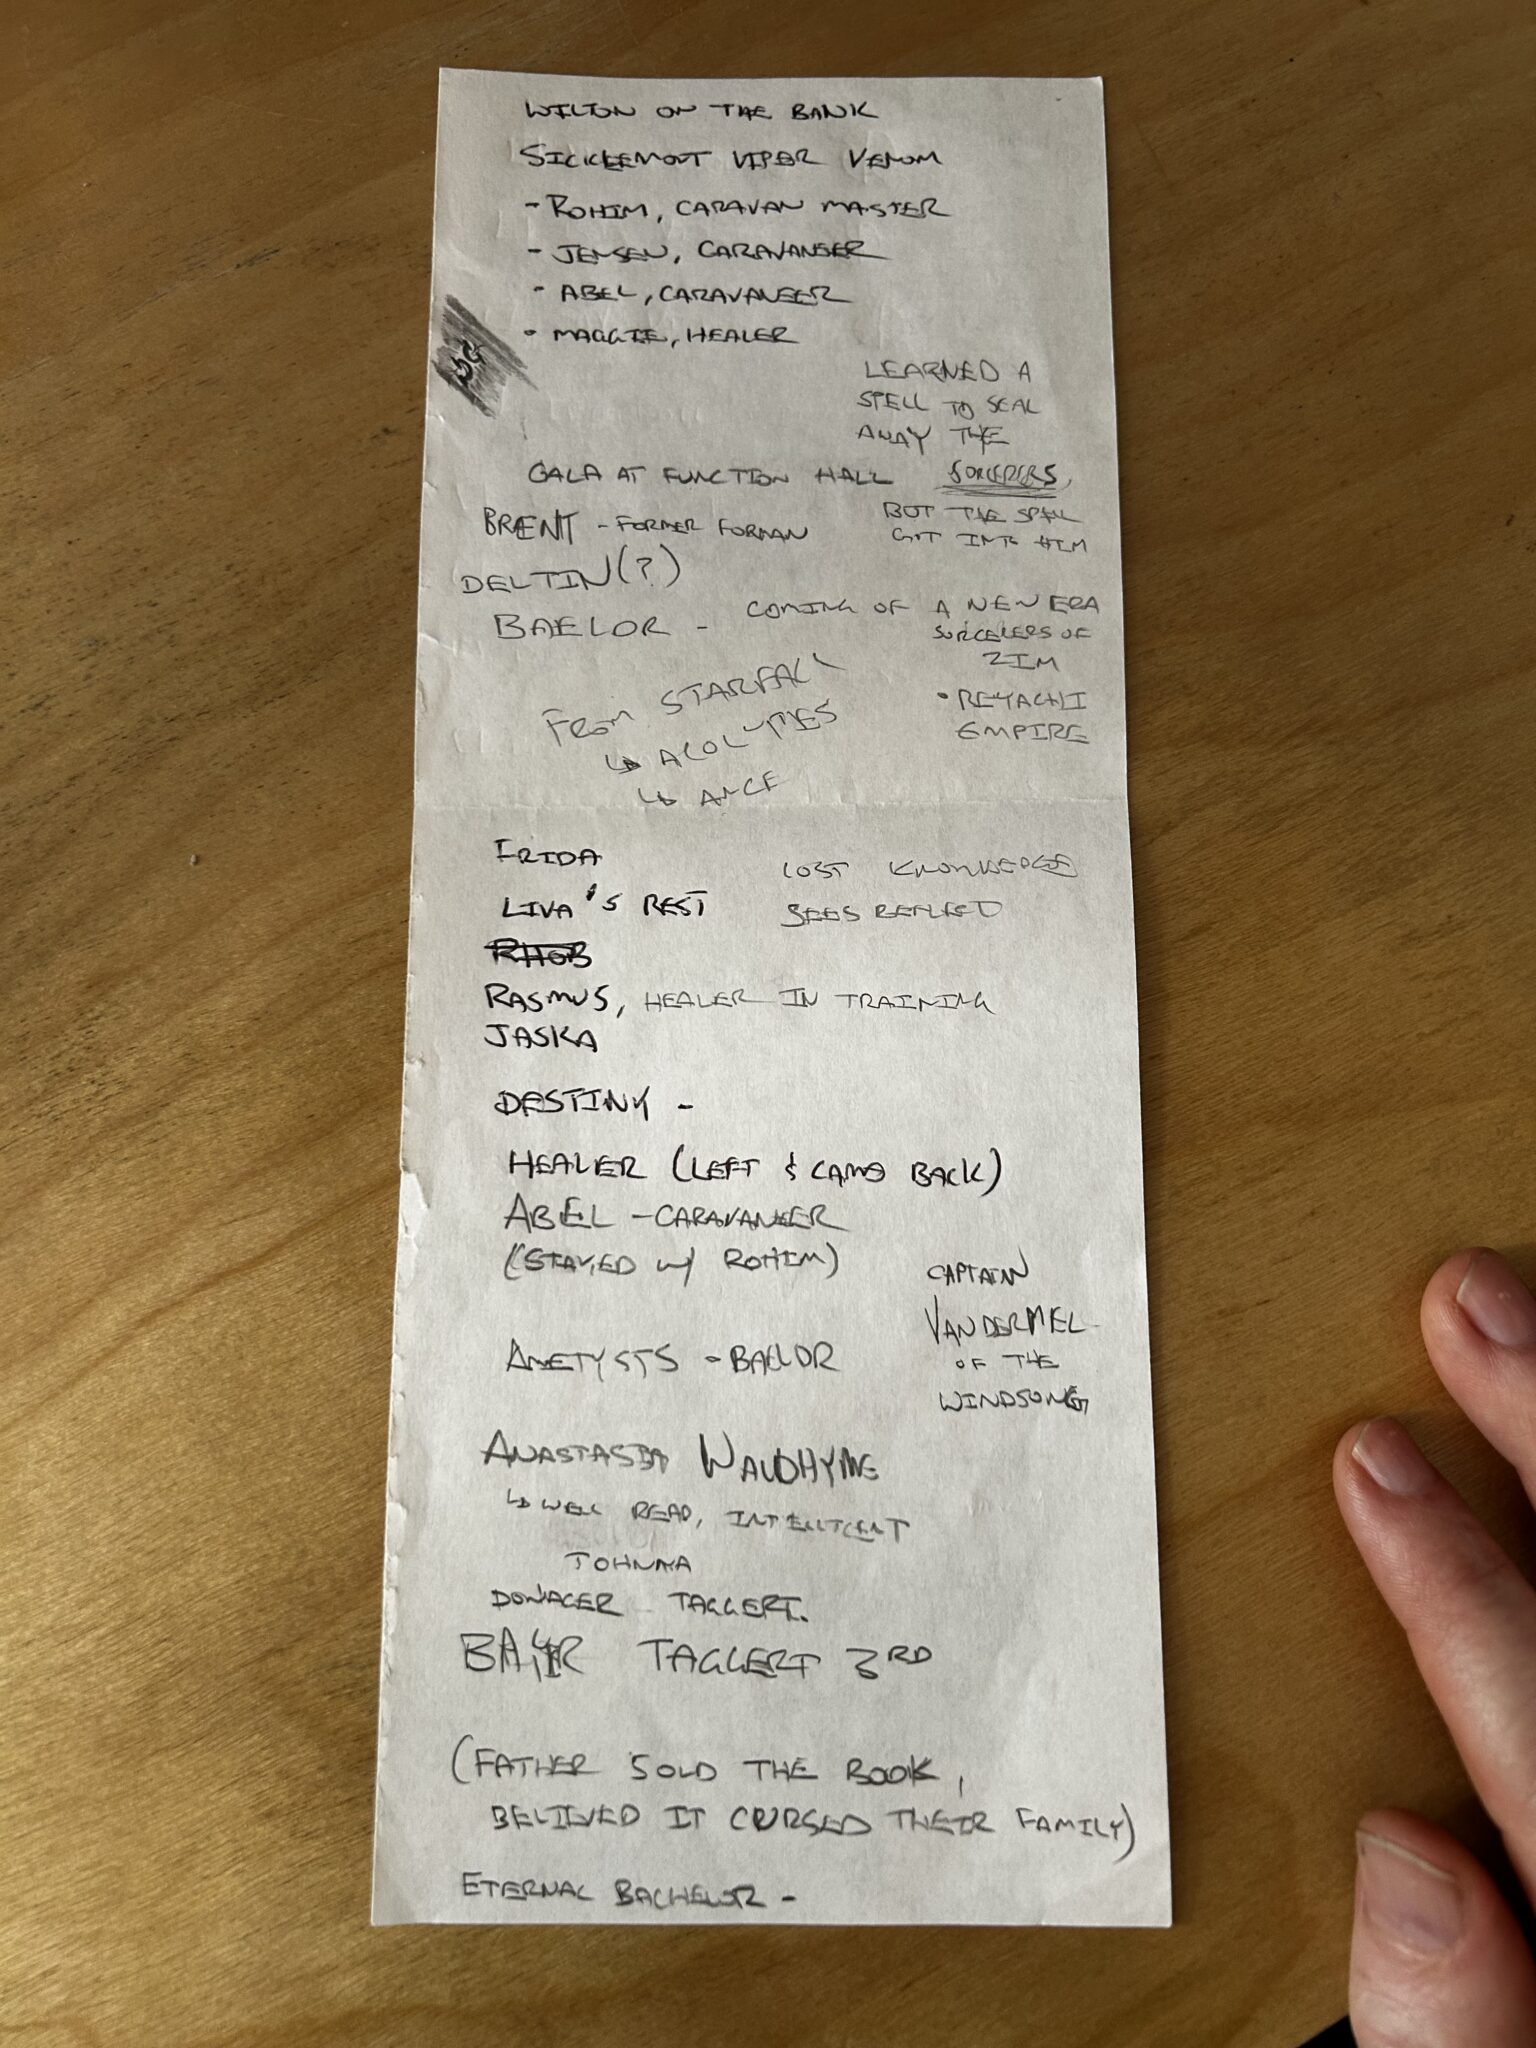 WILTON ON THE BANK
SICKLEMOUT VIPER VENOM
- ROHIM, CARAVAN MASTER
- JENSEN, CARAVANEER
- ABEL, CARAVANEER
• MAGGIE, HEALER
LEARNED A
SPELL TO SEAL
AWAY THE
GALA AT FUNCTION HALL SORCERERS,
BUT THE SPELL
GOT INTO HIM
BRAENT - FORMER FORMAN
DELTIN(?)
BAELOR - COMING OF A NEW ERA
SORCERERS OF
ZIM
• REYACHI
EMPIRE
FROM STARFALL
↳ ACOLYTES
↳
FRIDA
LOST KNOWLEDGE
LIVA'S REST
SEES REFLECTD
RHOB
RASMUS, HEALER IN TRAINING
JASKA
DESTINY -
HEALER (LEFT & CAME BACK)
ABEL - CARAVANEER
(STAYED W/ ROHIM)
CAPTAIN
VANDERMEL
OF THE
WINDSONG
AMETYSTS - BAELOR
ANASTASIA WALDHYME
↳ WELL READ, INTELLIGENT
JOHNNA
DOWAGER TAGGERT.
TAGGERT 3RD
(FATHER SOLD THE BOOK,
BELIEVED IT CURSED THEIR FAMILY)
ETERNAL BACHELOR -